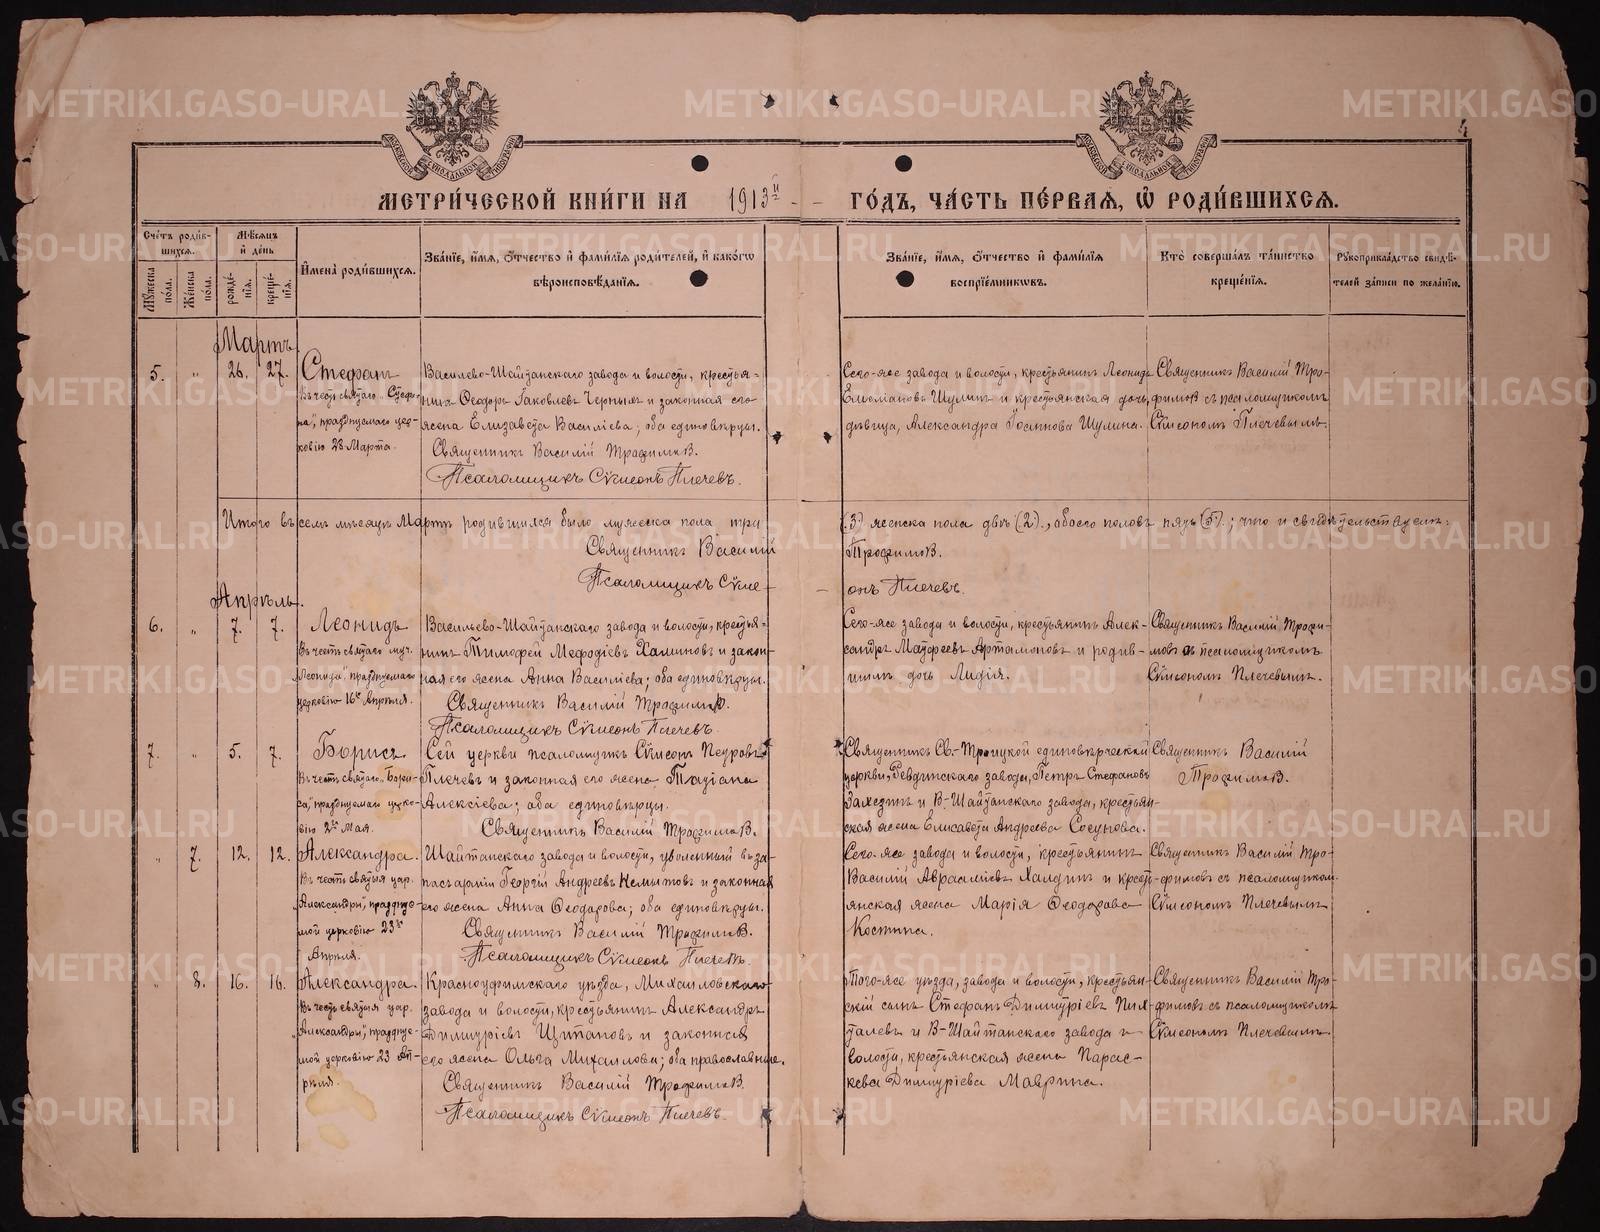 4
МЕТРИ́ЧЕСКОЙ КНИ́ГИ НА 1913й ГО́ДЪ, ЧА́СТЬ ПЕ́РВАЯ, Ѡ РОДИ́ВШИХСЯ.
Сче́тъ роди́вшихся.
Мѣ́сяцъ и́ де́нь
Мꙋ́жеска по́ла.
Же́нска по́ла.
рожде́нїя.
креще́нїя.
И҆мена̀ роди́вшихся.
Зва́нїе, и҆́мя, ѻ҆́тчество и҆ фами́лїя роди́телей, и҆ како́гѡ вѣроисповѣ́данїя.
Зва́нїе, и҆́мя, ѻ҆́тчество и҆ фами́лїя воспрїе́мникѡвъ.
Кто̀ соверша́лъ та́инство креще́нїя.
Рꙋкоприкла́дство свидѣ́телей за́писи по жела́нїю.
Мартъ.
5. " 26. 27. Стефанъ
Въ честь святаго „Стефа-
на“, празднуемаго цер-
ковію 28 Марта.
Васильево-Шайтанскаго завода и волости, крестья=
нинъ Ѳеодоръ Іаковлевъ Черныхъ и законная его
жена Елизавета Васильева; оба единовѣрцы.
Священникъ Василій Трофимовъ.
Псаломщикъ Сѵмеонъ Плечевъ.
Сего-же завода и волости, крестьянинъ Леонидъ
Емельяновъ Шулинъ и крестьянская дочь,
дѣвица, Александра Іоаннова Шулина.
Священникъ Василій Тро-
фимовъ съ псаломщикомъ
Сѵмеономъ Плечевымъ.
Итого въ семъ мѣсяцѣ Мартѣ родившихся было мужеска пола три (3.) женска пола двѣ (2)., обоего половъ пять (5).; что и свидѣтельствуемъ:
Священникъ Василій Трофимовъ.
Псаломщикъ Сѵмеонъ Плечевъ.
Апрѣль.
6. " 7. 7. Леонидъ
Въ честь святаго муч.
„Леонида“, празднуемаго
церковію 16го Апрѣля.
Васильево-Шайтанскаго завода и волости, крестья=
нинъ Тимофей Меѳодіевъ Халиновъ и закон-
ная его жена Анна Васильева; оба единовѣрцы.
Священникъ Василій Трофимовъ.
Псаломщикъ Сѵмеонъ Плечевъ.
Сего-же завода и волости, крестьянинъ Алек-
сандръ Матѳеевъ Артамоновъ и родив-
шихъ дочь Лидія.
Священникъ Василій Трофи-
мовъ съ псаломщикомъ
Сѵмеономъ Плечевымъ.
7. " 5. 7. Борисъ
Въ честь святаго „Бори-
са“, празднуемаго церко-
вію 2го Мая.
Сей церкви псаломщикъ Сѵмеонъ Петровъ
Плечевъ и законная его жена Татіана
Алексіева; оба единовѣрцы.
Священникъ Василій Трофимовъ.
Священникъ Св.-Троицкой единовѣрческой
церкви, Ревдинскаго завода, Петръ Стефановъ
и В-Шайтанскаго завода, крестьян-
ская жена Елисавета Андреева Сосунова.
Священникъ Василій
Трофимовъ.
" 7. 12. 12. Александра.
Въ честь святыя цар.
„Александры“, празднуе-
мой церковію 23го
Апрѣля.
Шайтанскаго завода и волости, уволенный въ за-
пасъ арміи Георгій Андреевъ Немытовъ и законная
его жена Анна Ѳеодорова; оба единовѣрцы.
Священникъ Василій Трофимовъ.
Псаломщикъ Сѵмеонъ Плечевъ.
Сего-же завода и волости, крестьянинъ
Василій Авраамі­евъ Халдинъ и крестъ-
янская жена Марія Ѳеодорова
Костина.
Священникъ Василій Тро-
фимовъ съ псаломщиком.
Сѵмеономъ Плечевымъ
" 8. 16. 16. Александра.
Въ честь святыя цар.
„Александры“, празднуе-
мой церковію 23 Ап-
рѣля.
Красноуфимскаго уѣзда, Михайловскаго
завода и волости, крестьянинъ Александръ
Димитріевъ Щипановъ и законная
его жена Ольга Михайлова; оба православные.
Священникъ Василій Трофимовъ.
Псаломщикъ Сѵмеонъ Плечевъ.
Того-же уѣзда, завода и волости, крестьян-
скій сынъ Стефанъ Димитріевъ Пях-
талевъ и В-Шайтанскаго завода и
волости, крестьянская жена Парас-
кева Димитріева Маврина.
Священникъ Василій Тро-
фимовъ съ псаломщикомъ
Сѵмеономъ Плечевымъ
METRIKI.GASO-URAL.RU